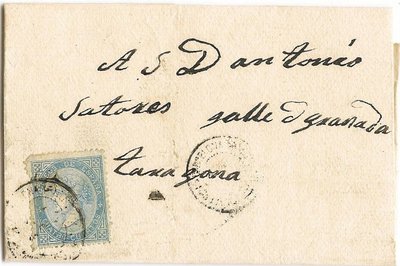 A S D antonio
Satores calle d granada
taragona